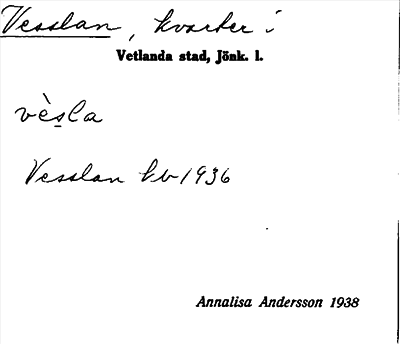 Vesslan, kvarter i
Vetlanda stad, Jönk. l.
vèsla
Vesslan kv 1936
Annalisa Andersson 1938